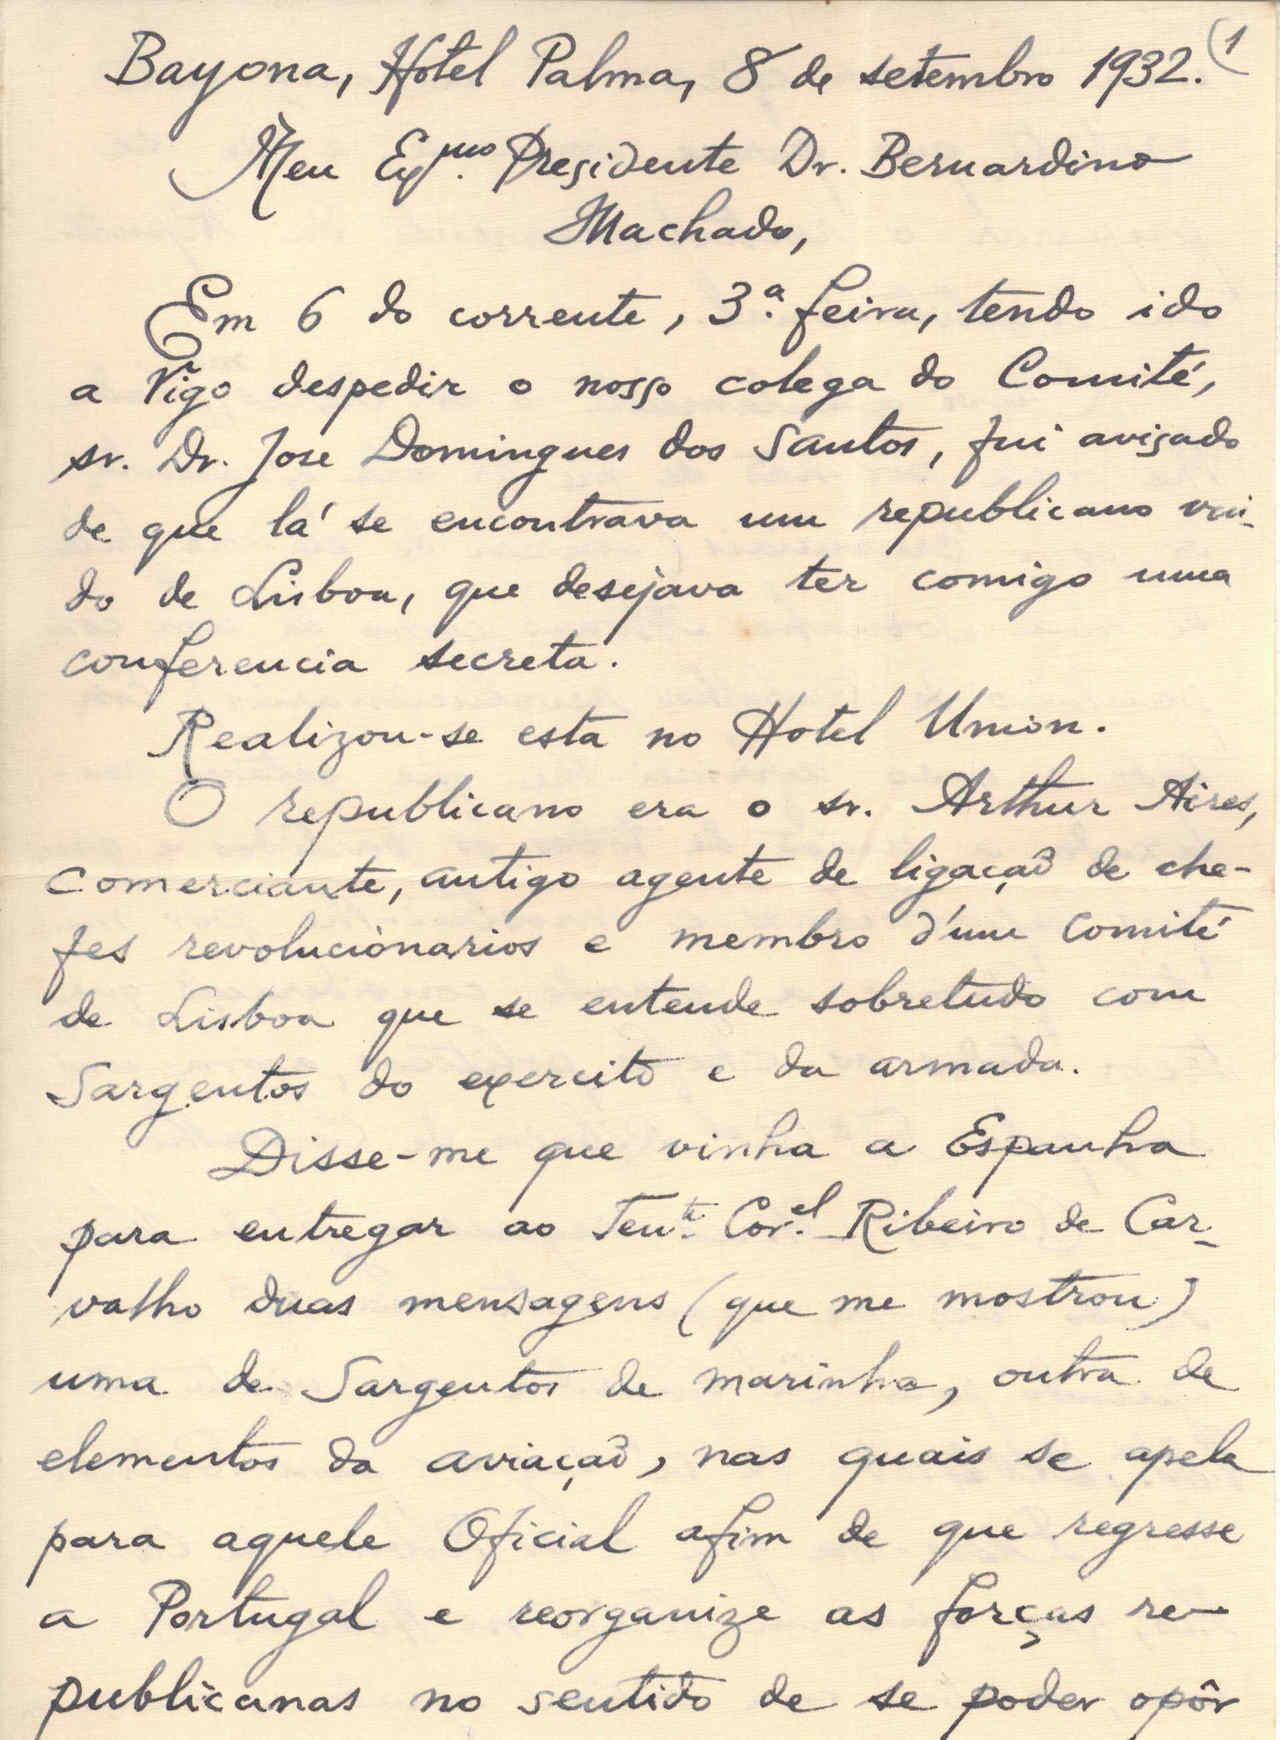 (1
Bayona, Hotel Palma, 8 de setembro 1932.
Meu Exmo. Presidente Dr. Bernardino
Machado,
Em 6 do corrente, 3ª. feira, tendo ido
a Vigo despedir o nosso colega do Comité,
sr. Dr. Jose Domingues dos Santos, fui avisado
de que lá se encontrava um republicano vin-
do de Lisboa, que desejava ter comigo uma
conferencia secreta.
Realizou-se esta no Hotel Union.
O republicano era o sr. Arthur Aires,
comerciante, antigo agente de ligação de che-
fes revolucionarios e membro d'um comité
de Lisboa que se entende sobretudo com
Sargentos do exercito e da armada.
Disse-me que vinha a Espanha
para entregar ao Tente. Corel. Ribeiro de Car-
valho duas mensagens (que me mostrou)
uma de Sargentos de marinha, outra de
elementos da aviação, nas quais se apela
para aquele Oficial afim de que regresse
a Portugal e reorganize as forças re-
publicanas no sentido de se poder opôr